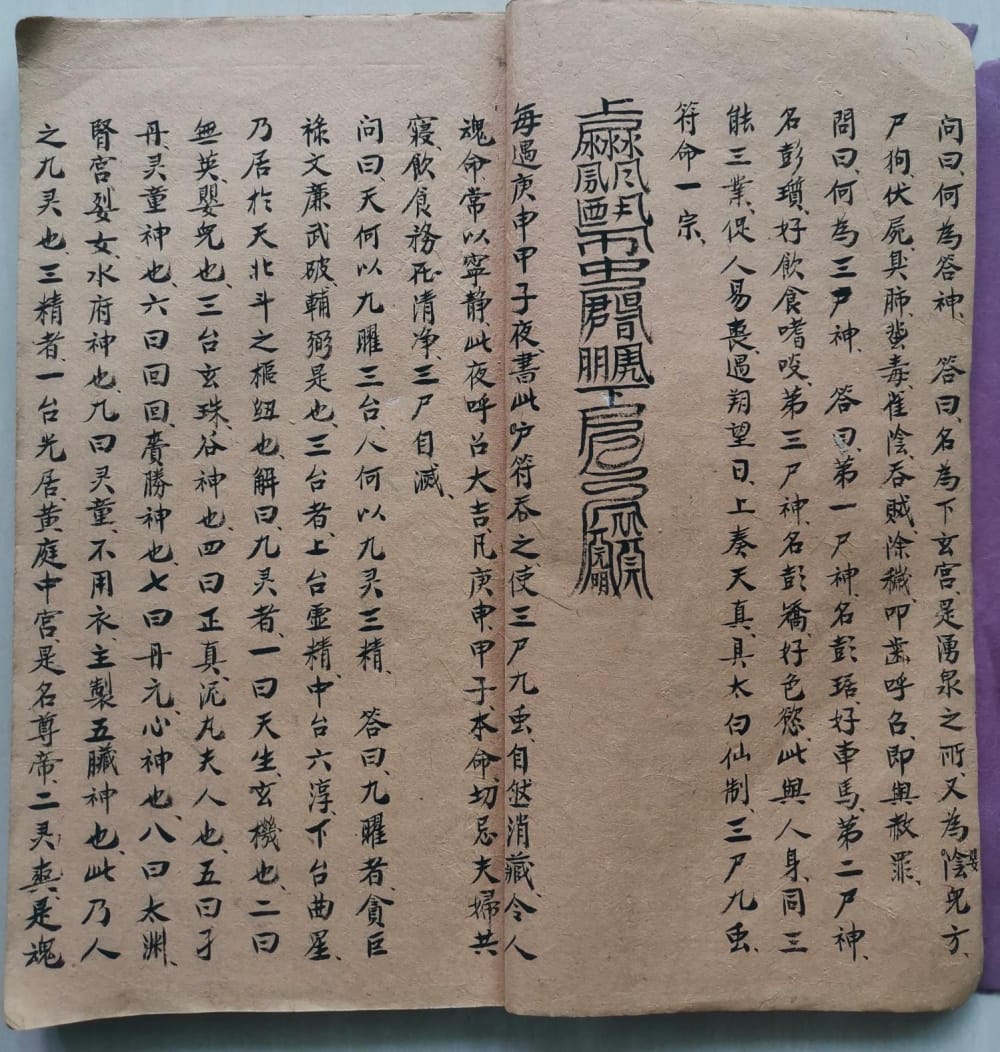 问曰、何為咨神、 答曰、名為下玄宮、是湧泉之所、又為陰嬰兒方、
尸狗、伏屍、具肺、蜚毒、雀陰、吞贼、除穢、叩齒呼名、即與赦罪、
問曰、何為三尸神、 答曰、第一尸神、名彭琚、好車馬、第二尸神、
名彭瓆、好飲食嗜咬、第三尸神、名彭矯、好色慾、此與人身、同三
能三業、促人易喪、遇朔望日、上奏天真、具太白仙制、三尸九虫、
符命一宗、
每遇庚申甲子夜、書此符吞之、使三尸九虫、自然消藏、令人
魂命常以寧静、此夜呼名大吉、凡庚申甲子、本命切忌夫婦共
寝、飲食務在清净、三尸自滅、
問曰、天何以九曜三台、人何以九灵三精、 答曰、九曜者、貪巨
祿文廉武破、輔弼是也、三台者、上台虚精、中台六淳、下台曲星、
乃居於天北斗之樞紐也、解曰、九灵者、一曰天生、玄機也、二曰
無英、嬰兒也、三台玄珠、谷神也、四曰正真、泥丸夫人也、五曰子
丹、灵童神也、六曰回回、賡勝神也、七曰丹元、心神也、八曰太渊、
腎宮裂女、水府神也、九曰灵童、不用衣、主製五臟神也、此乃人
之九灵也、三精者、一台光居、黄庭中宮、是名尊帝、二灵爽、是魂